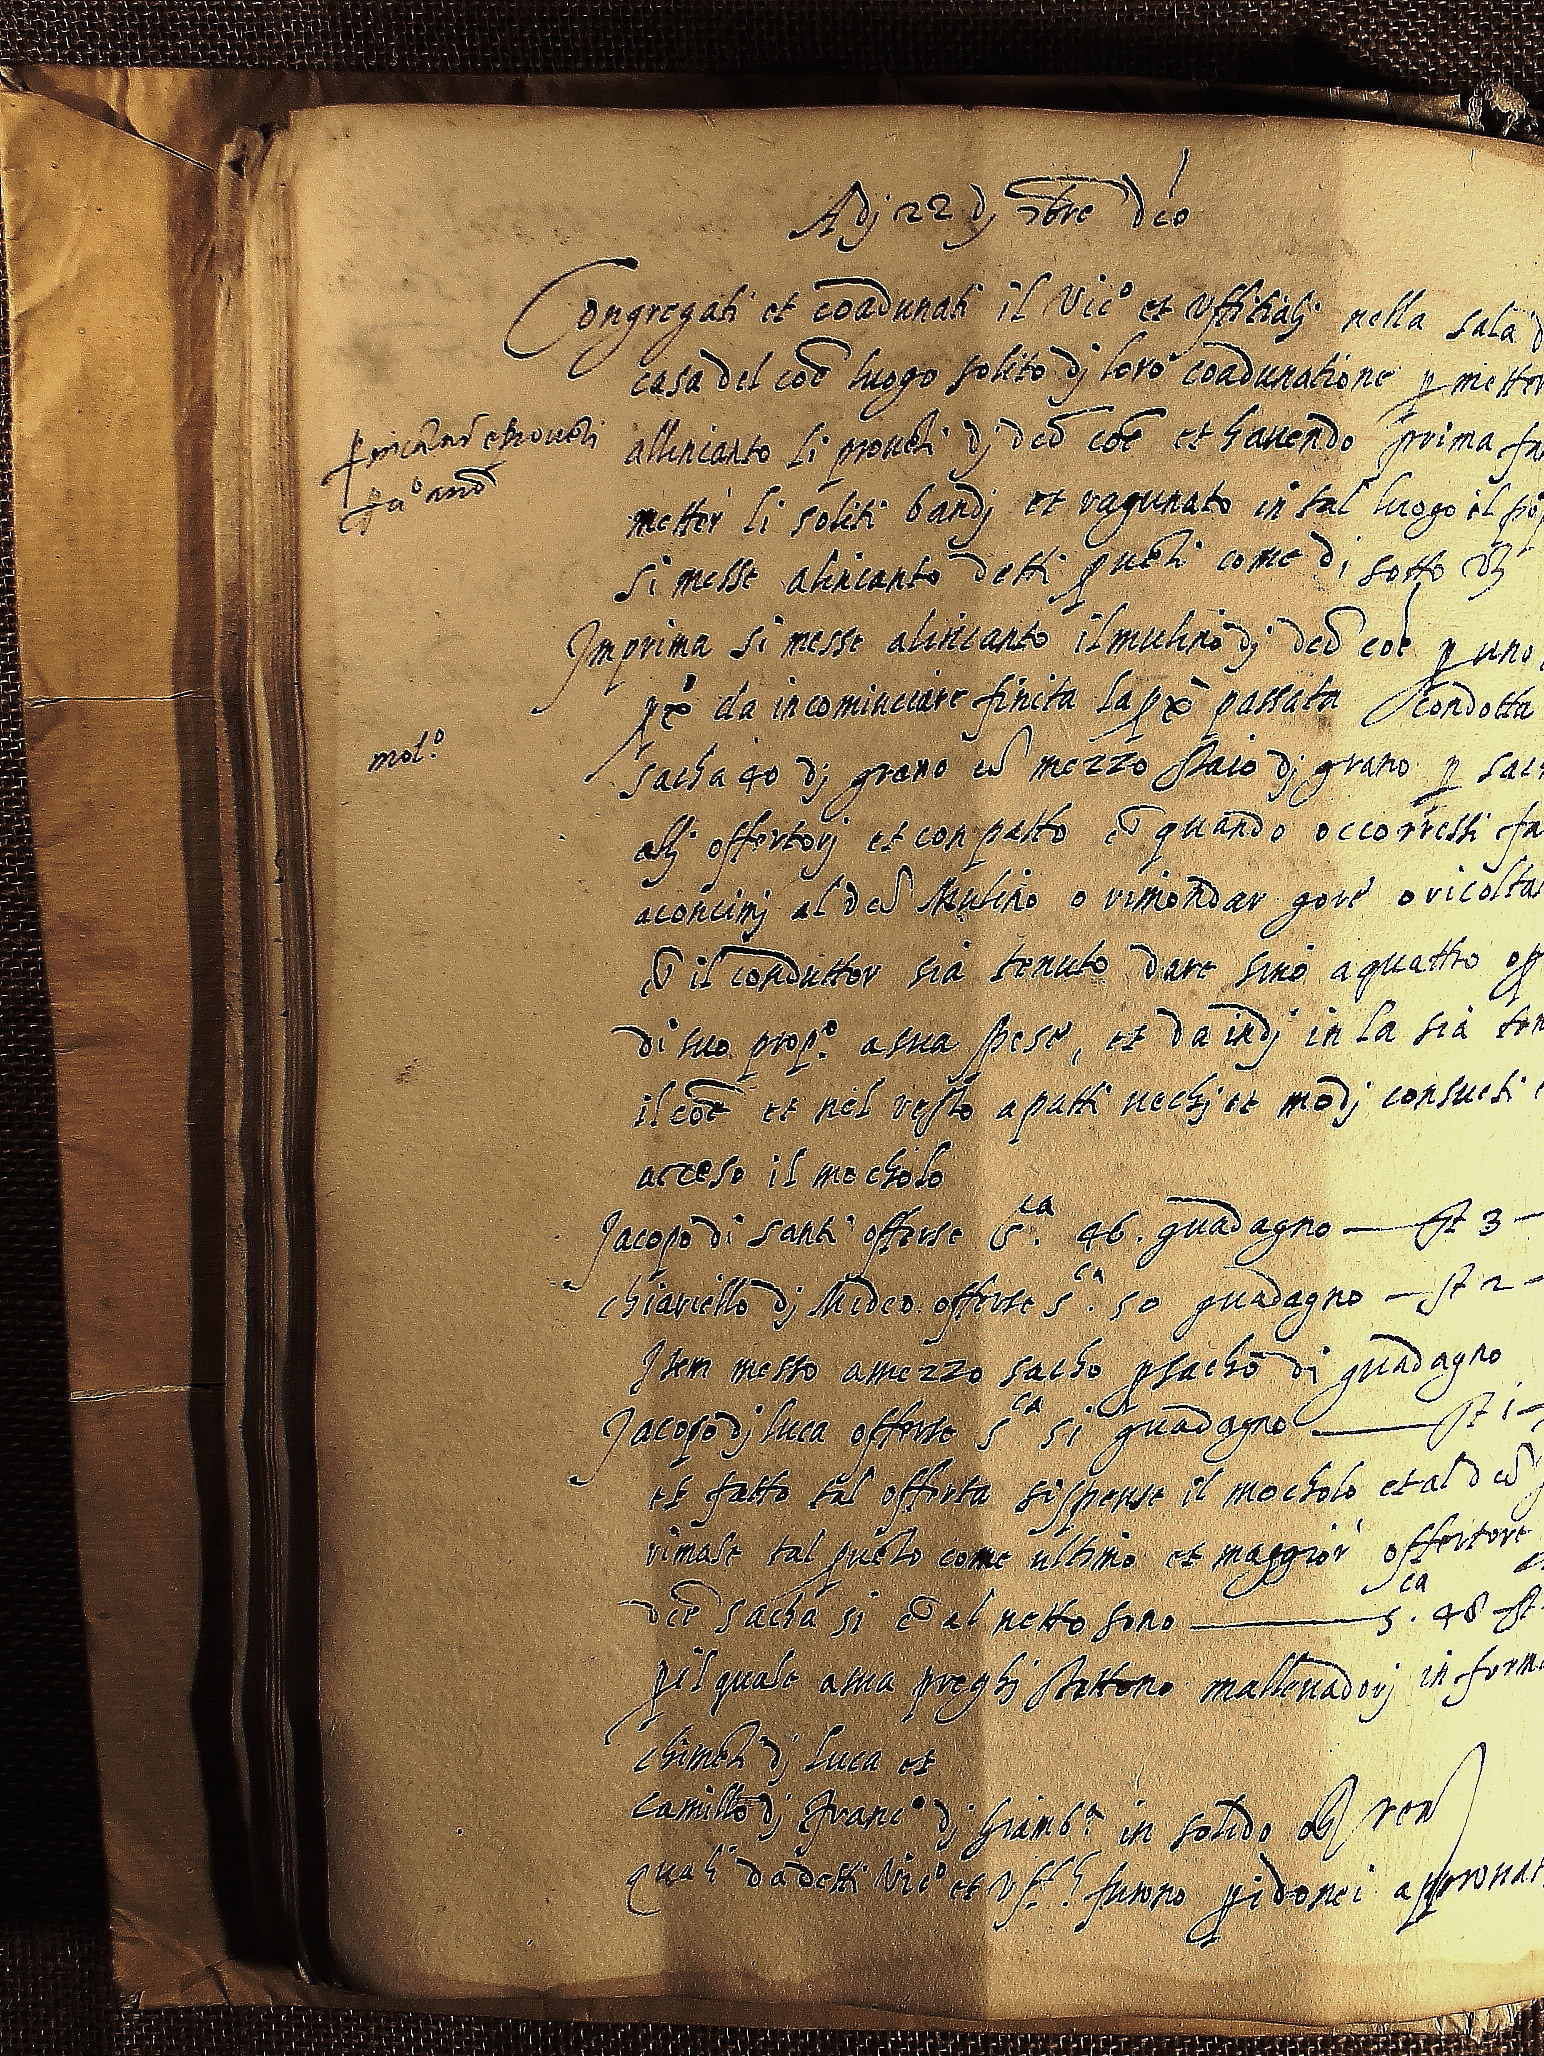 Adj 22 dj 9bre dco
Congregati et coadunati il Vic.o et Uffitialj nella sala d
casa del coe luogo solito dj loro coadunatione p metter
allincanto li proveti dj dco coe et havendo prima fa
p incantar e proveti
p.a anno
metter li soliti bandj et ragunato in tal luogo il pop
si messe alincanto detti pueti come di sotto
Imprima si messe alincanto il mulino dj dco coe p uno
da incominciare finita la passata condotta
mol.o
sacha 40 dj grano co mezzo staio dj grano p sach
alj offertorj et con patto ch quando occorressi fa
aconcimj al dco Mulino o rimondar gore o ricolta
ch il conduttor sia tenuto dare sino a quattro op
di suo prop.o a sua spese, et da indj in la sia ten
il coe et nel resto a patti vechj et modj consueti e
acceso il mocholo
Jacopo di santi offerse s.ca 46. guadagno — st 3 –
chiariello dj Mideo offerse s.ca 50 guadagno — st 2 –
Item messo a mezzo sacho p sacho di guadagno
Jacopo dj luca offerse s.ca 51 guadagno — st 1 –
et fatto tal offerta si spense il mocholo et al dco J
rimase tal pueto come ultimo et maggior offertore
dce sacha 51 ch al netto sono — s.ca 48 st
p il quale a sua preghj stettono mallevadorj in forma
chimeti dj luca et
camillo dj franc.o dj Giamb.a in solido ren
quali da detti Vic.o et Uff.li furono p idonei approvat